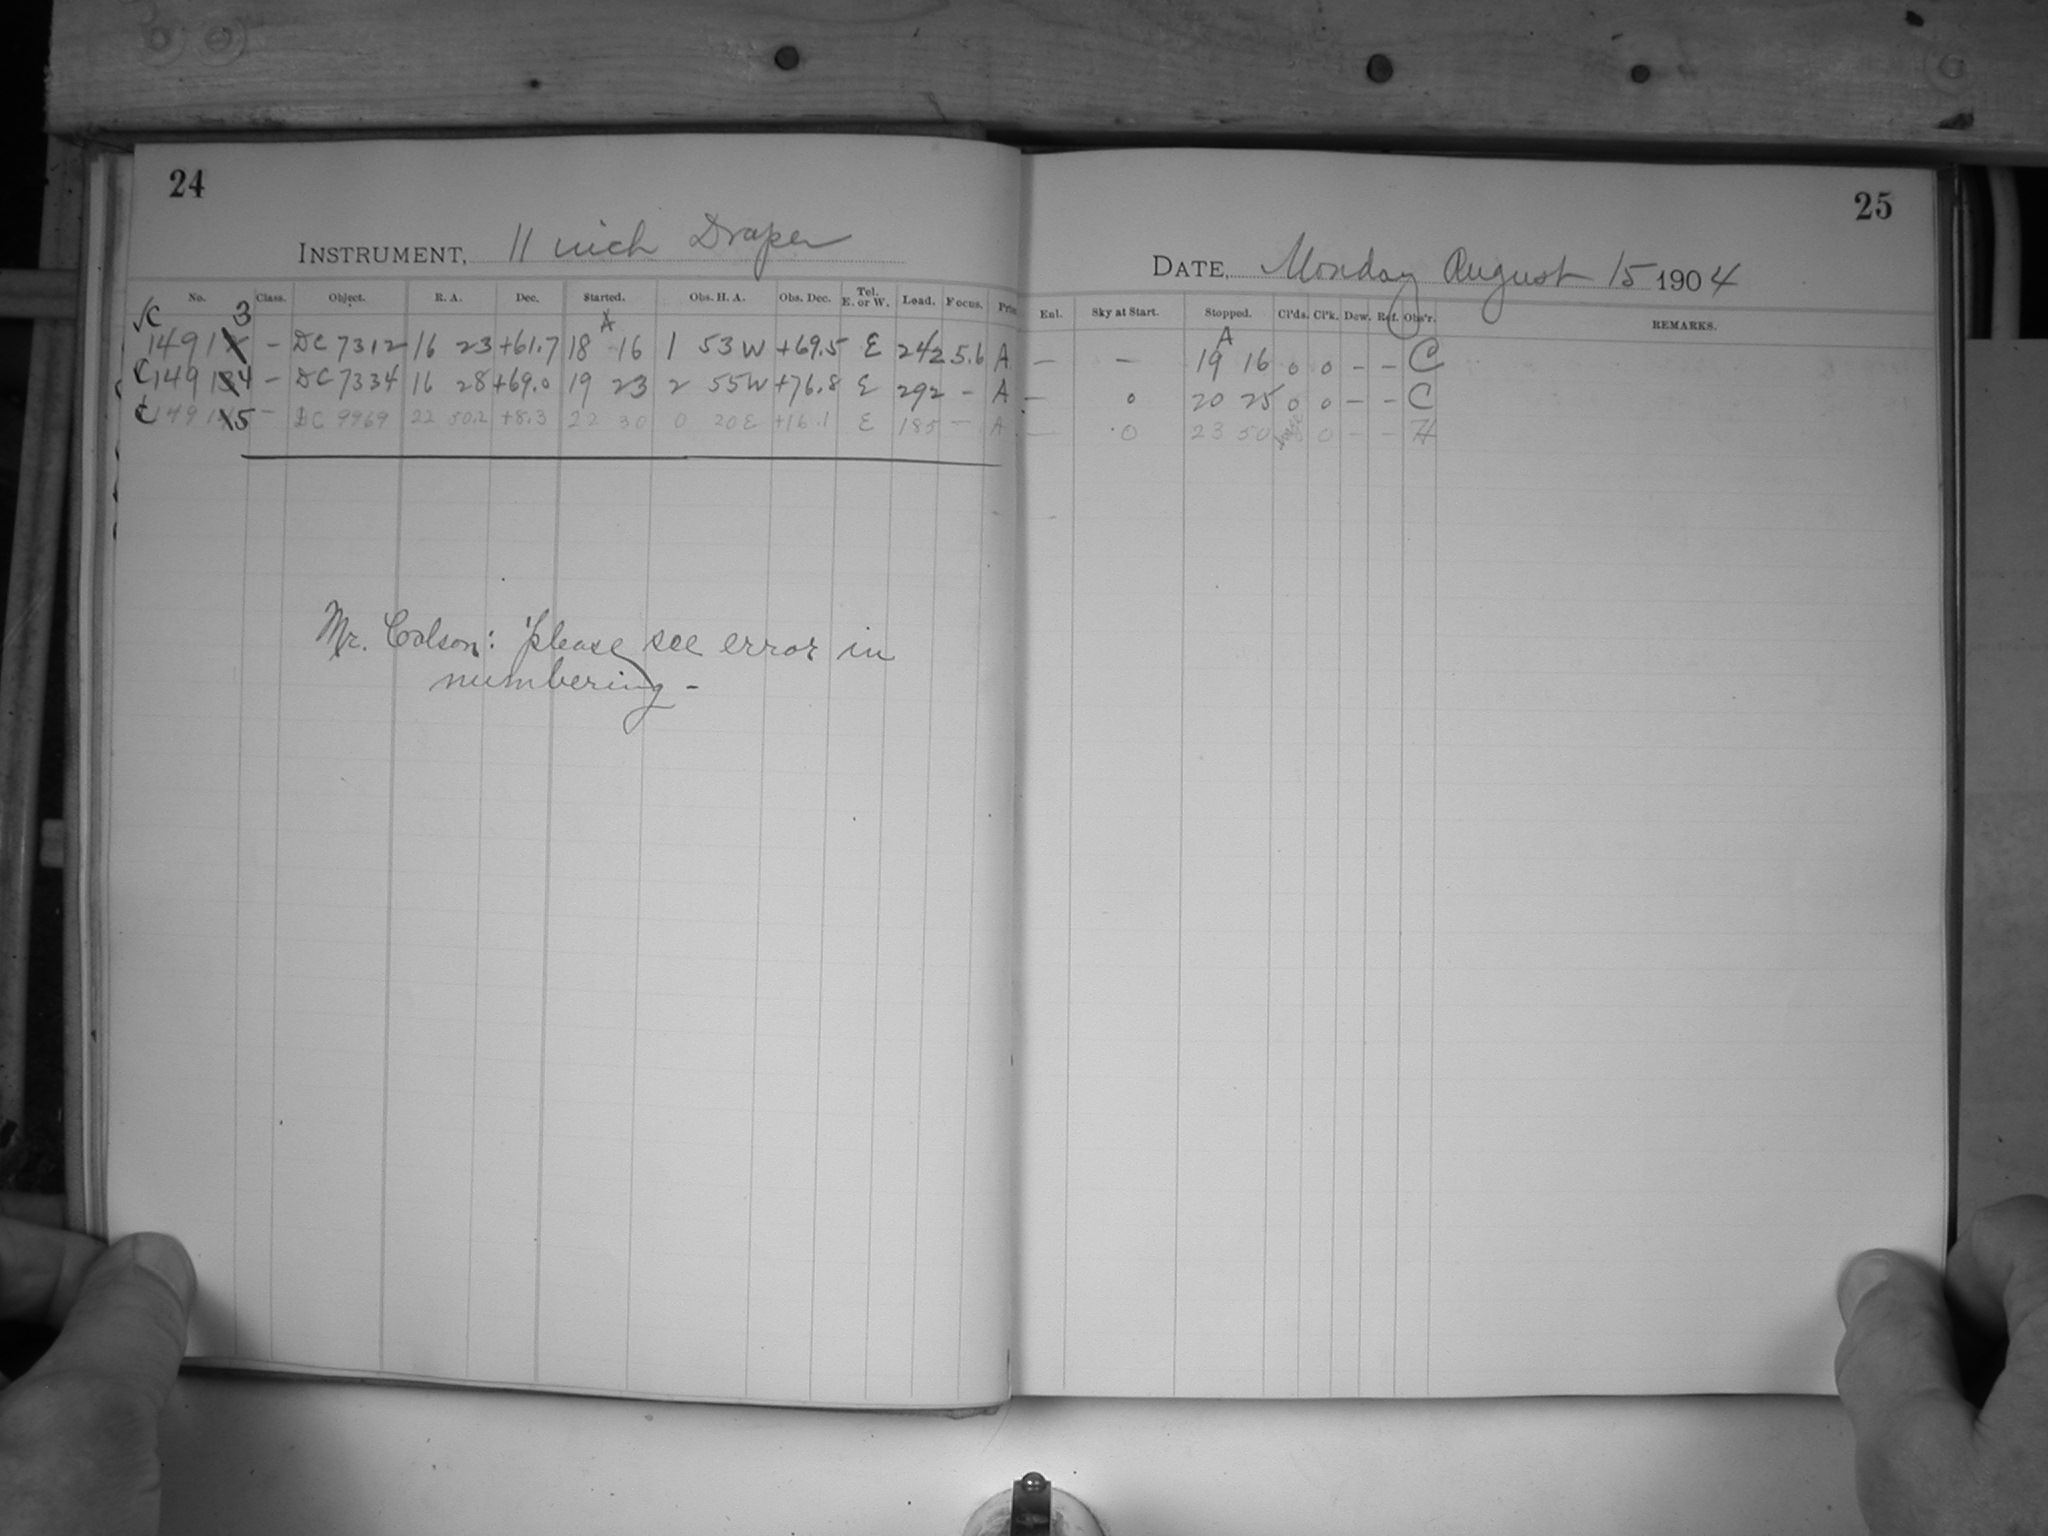 24
INSTRUMENT, 11 inch Draper
No. Class. Object. R. A. Dec. Started. Obs. H. A. Obs. Dec. Tel. E. or W. Load. Focus.
√C 1491 3 – DC 7312 16 23 +61.7 18 16 1 53 W +69.5 E 242 5.6 A
C 14914 – DC 7334 16 28 +69.0 19 23 2 55 W +76.8 E 292 – A
C 14915 – DC 9969 22 50.2 +8.3 22 30 0 20 E +16.1 E 185 – A
Mr. Colson: Please see error in
numbering –
25
DATE, Monday August 15 1904
Enl. Sky at Start. Stopped. Cl'ds. Cl'k. Dew. Ref. Obs'r. REMARKS.
A
— – 19 16 0 0 – – C
— 0 20 25 0 0 – – C
— 0 23 50 0 – – H